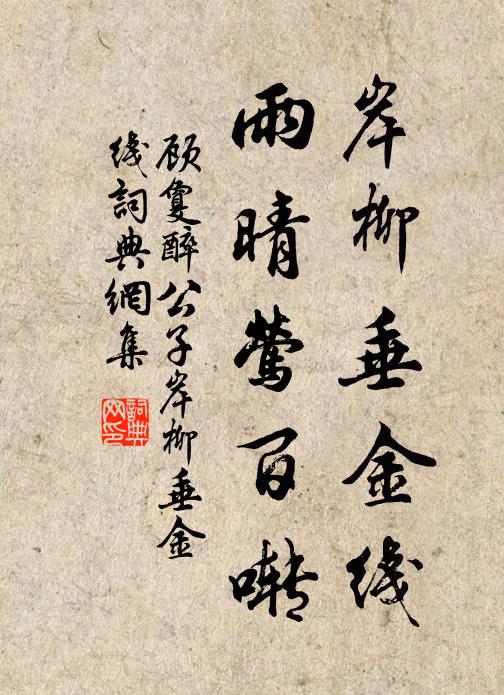 岸柳垂金线
雨晴莺百啭
顾夐醉公子岸柳垂金
线詞典網集
詞典
网印